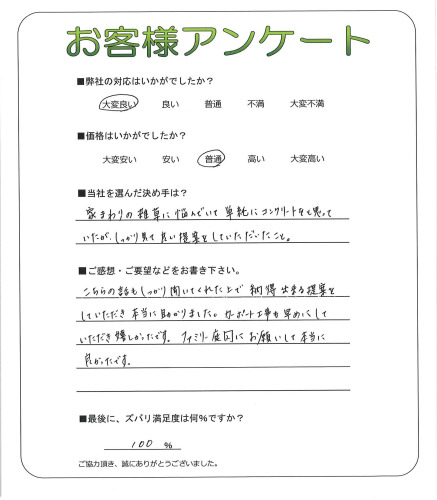 お客様アンケート
■弊社の対応はいかがでしたか？
大変良い 良い 普通 不満 大変不満
■価格はいかがでしたか？
大変安い 安い 普通 高い 大変高い
■当社を選んだ決め手は？
家まわりの雑草に悩んでいて単純にコンクリートをと思って
いたが、しっかり見て良い提案をしていただいたこと。
■ご感想・ご要望などをお書き下さい。
こちらの話もしっかり聞いてくれた上で納得出来る提案を
していただき本当に助かりました。カーポート工事も早めにして
いただき嬉しかったです。ファミリー庭園にお願いして本当に
良かったです。
■最後に、ズバリ満足度は何％ですか？
100 ％
ご協力頂き、誠にありがとうございました。